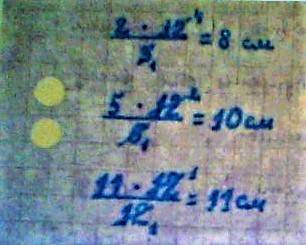 2 · 12⁴ / 3₁ = 8 см
5 · 12² / 6₁ = 10 см
11 · 12¹ / 12₁ = 11 см